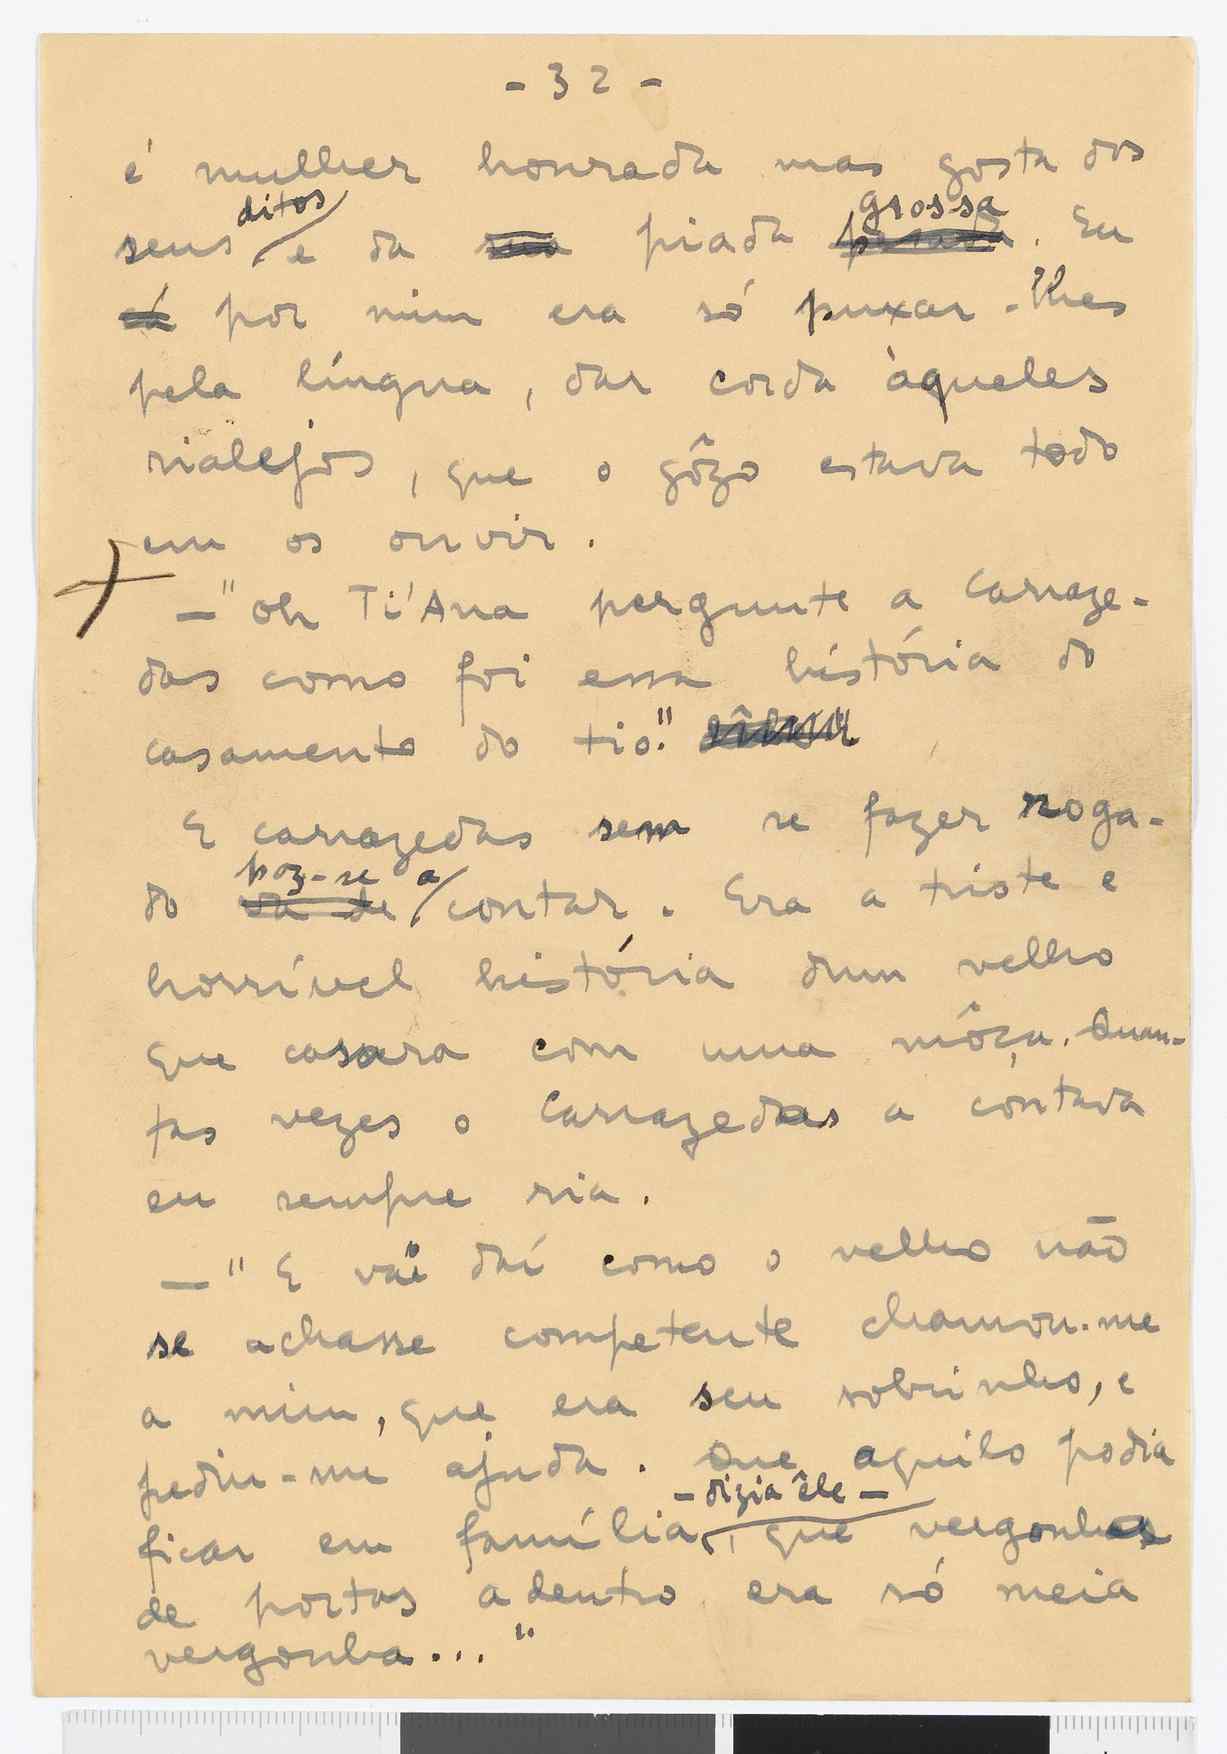 - 32 -
é mulher honrada mas gosta dos
ditos grossa
seus e da sua piada pesada. Eu
cá por mim era só puxar-lhes
pela língua, dar corda àqueles
rialejos, que o gôzo estava todo
em os ouvir.
—"Oh Ti'Ana pergunte a Carraze-
das como foi essa história do
casamento do tio."
E Carrazedas sem se fazer roga-
poz-se a
do vá de contar. Era a triste e
horrível história dum velho
que casara com uma môça. Quan-
tas vezes o Carrazedas a contava
eu sempre ria.
—"E vai daí como o velho não
se achasse competente chamou-me
a mim, que era seu sobrinho, e
pediu-me ajuda. Que aquilo podia
— dizia êle —
ficar em família, que vergonha
de portas adentro era só meia
vergonha..."